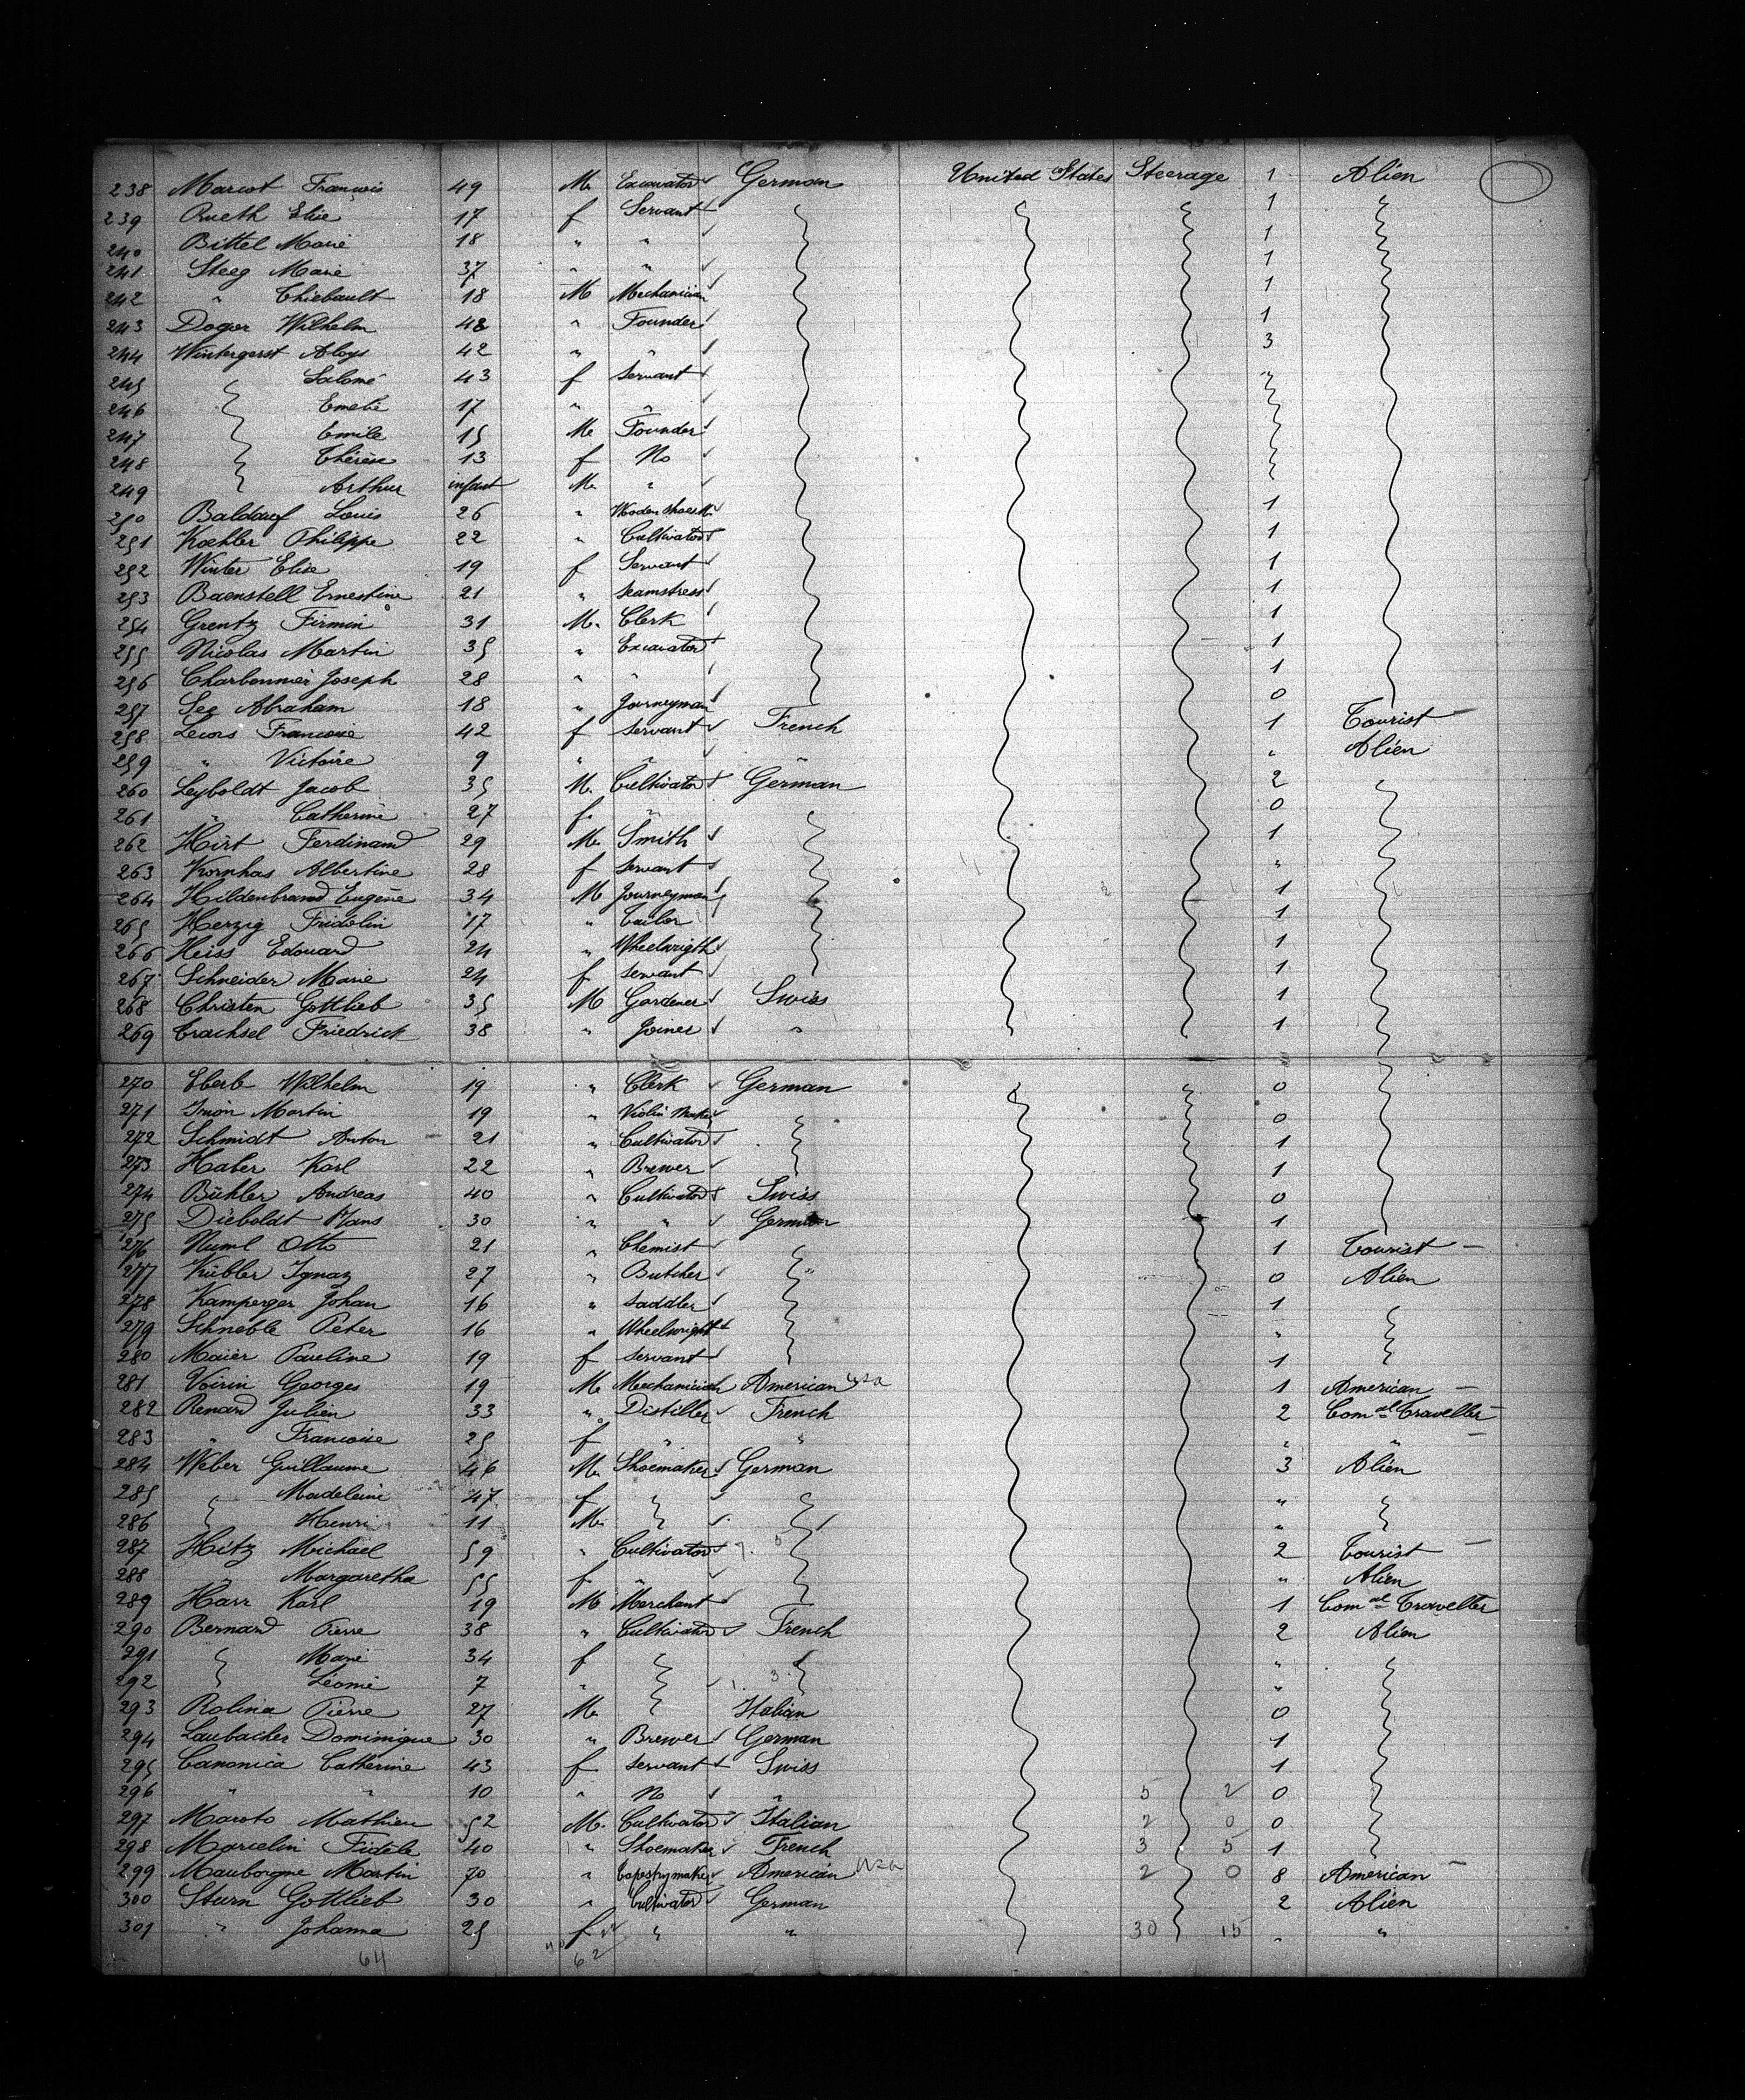 238 Marcot François 49 M. Excavator German United States Steerage 1 Alien
239 Rueth Elise 17 f Servant 1
240 Bittel Marie 18 " " 1
241 Steeg Marie 37 " " 1
242 " Thiebault 18 M Mechanician 1
243 Wilhelm 48 " Founder 1
244 Wintergerst Aloys 42 " " 3
245 Salomé 43 f Servant "
246 Emelie 17 " "
247 Emile 15 M. Founder
248 Thérèse 13 f No
249 Arthur infant M. "
250 Baldauf Louis 26 " 1
251 Koehler Philippe 22 " Cultivator 1
252 Winter Elise 19 f Servant 1
253 Baenstell Ernestine 21 " seamstress 1
254 Grentz Firmin 31 M. Clerk 1
255 Nicolas Martin 35 " Excavator 1
256 Charbonnier Joseph 28 " " 1
257 See Abraham 18 " Journeyman 0
258 Francoise 42 f servant French 1 Tourist
259 " Victoire 9 " " " " Alien
260 Leyboldt Jacob 35 M. Cultivator German 2
261 " Catherine 27 f " 0
262 Hirt Ferdinand 29 M. Smith 1
263 Kornhas Albertine 28 f servant "
264 Hildenbrand Eugène 34 M Journeyman 1
265 Herzig Fridolin 17 " Tailor 1
266 Heiss Edouard 24 " Wheelwrigth 1
267 Schneider Marie 24 f servant 1
268 Christen Gottlieb 35 M Gardener Swiss 1
269 Trachsel Friedrich 38 " Joiner " 1
270 Eberb Wilhelm 19 " Clerk German 0
271 Martin 19 " Violin Maker 0
272 Schmidt Anton 21 " Cultivator 1
273 Haber Karl 22 " Brewer 1
274 Bühler Andreas 40 " Cultivator Swiss 0
275 Dieboldt Hans 30 " " German 1
276 Otto 21 " Chemist 1 Tourist
277 Kübler Ignaz 27 " Butcher " 0 Alien
278 Kamperger Johan 16 " saddler 1
279 Schneble Peter 16 " Wheelwright "
280 Maier Pauline 19 f servant 1
281 Voirin Georges 19 M. Mechanician American USA 1 American
282 Renard Julien 33 " Distiller French 2 Comal Traveller
283 " Francoise 25 f " " " "
284 Weber Guillaume 46 M. Shoemaker German 3 Alien
285 Madeleine 47 f "
286 Henri 11 M. "
287 Hitz Michael 59 " Cultivator 2 Tourist
288 " Margaretha 55 f " " Alien
289 Harr Karl 19 M Merchant 1 Comal Traveller
290 Bernard Pierre 38 " Cultivator French 2 Alien
291 Marie 34 f "
292 Léonie 7 " 3 "
293 Rolina Pierre 27 M. Italian 0
294 Laubacher Dominique 30 " Brewer German 1
295 Canonica Catherine 43 f servant Swiss 1
296 " " 10 " No " 5 2 0
297 Maroto Mathieu 52 M. Cultivator Italian 2 0 0
298 Marcelin Fidèle 40 " Shoemaker French 3 5 1
299 Mauborgne Martin 70 " Tapestrymaker American USA 2 0 8 American
300 Sturn Gottlieb 30 " Cultivator German 2 Alien
301 " Johanna 25 f " " 30 15 " "
64 62